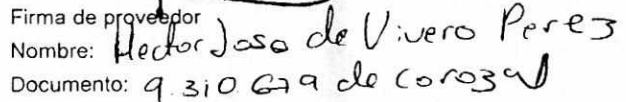 Firma de proveedor
Nombre: Hector Jose de Vivero Perez
Documento: 9.310.679 de corozal